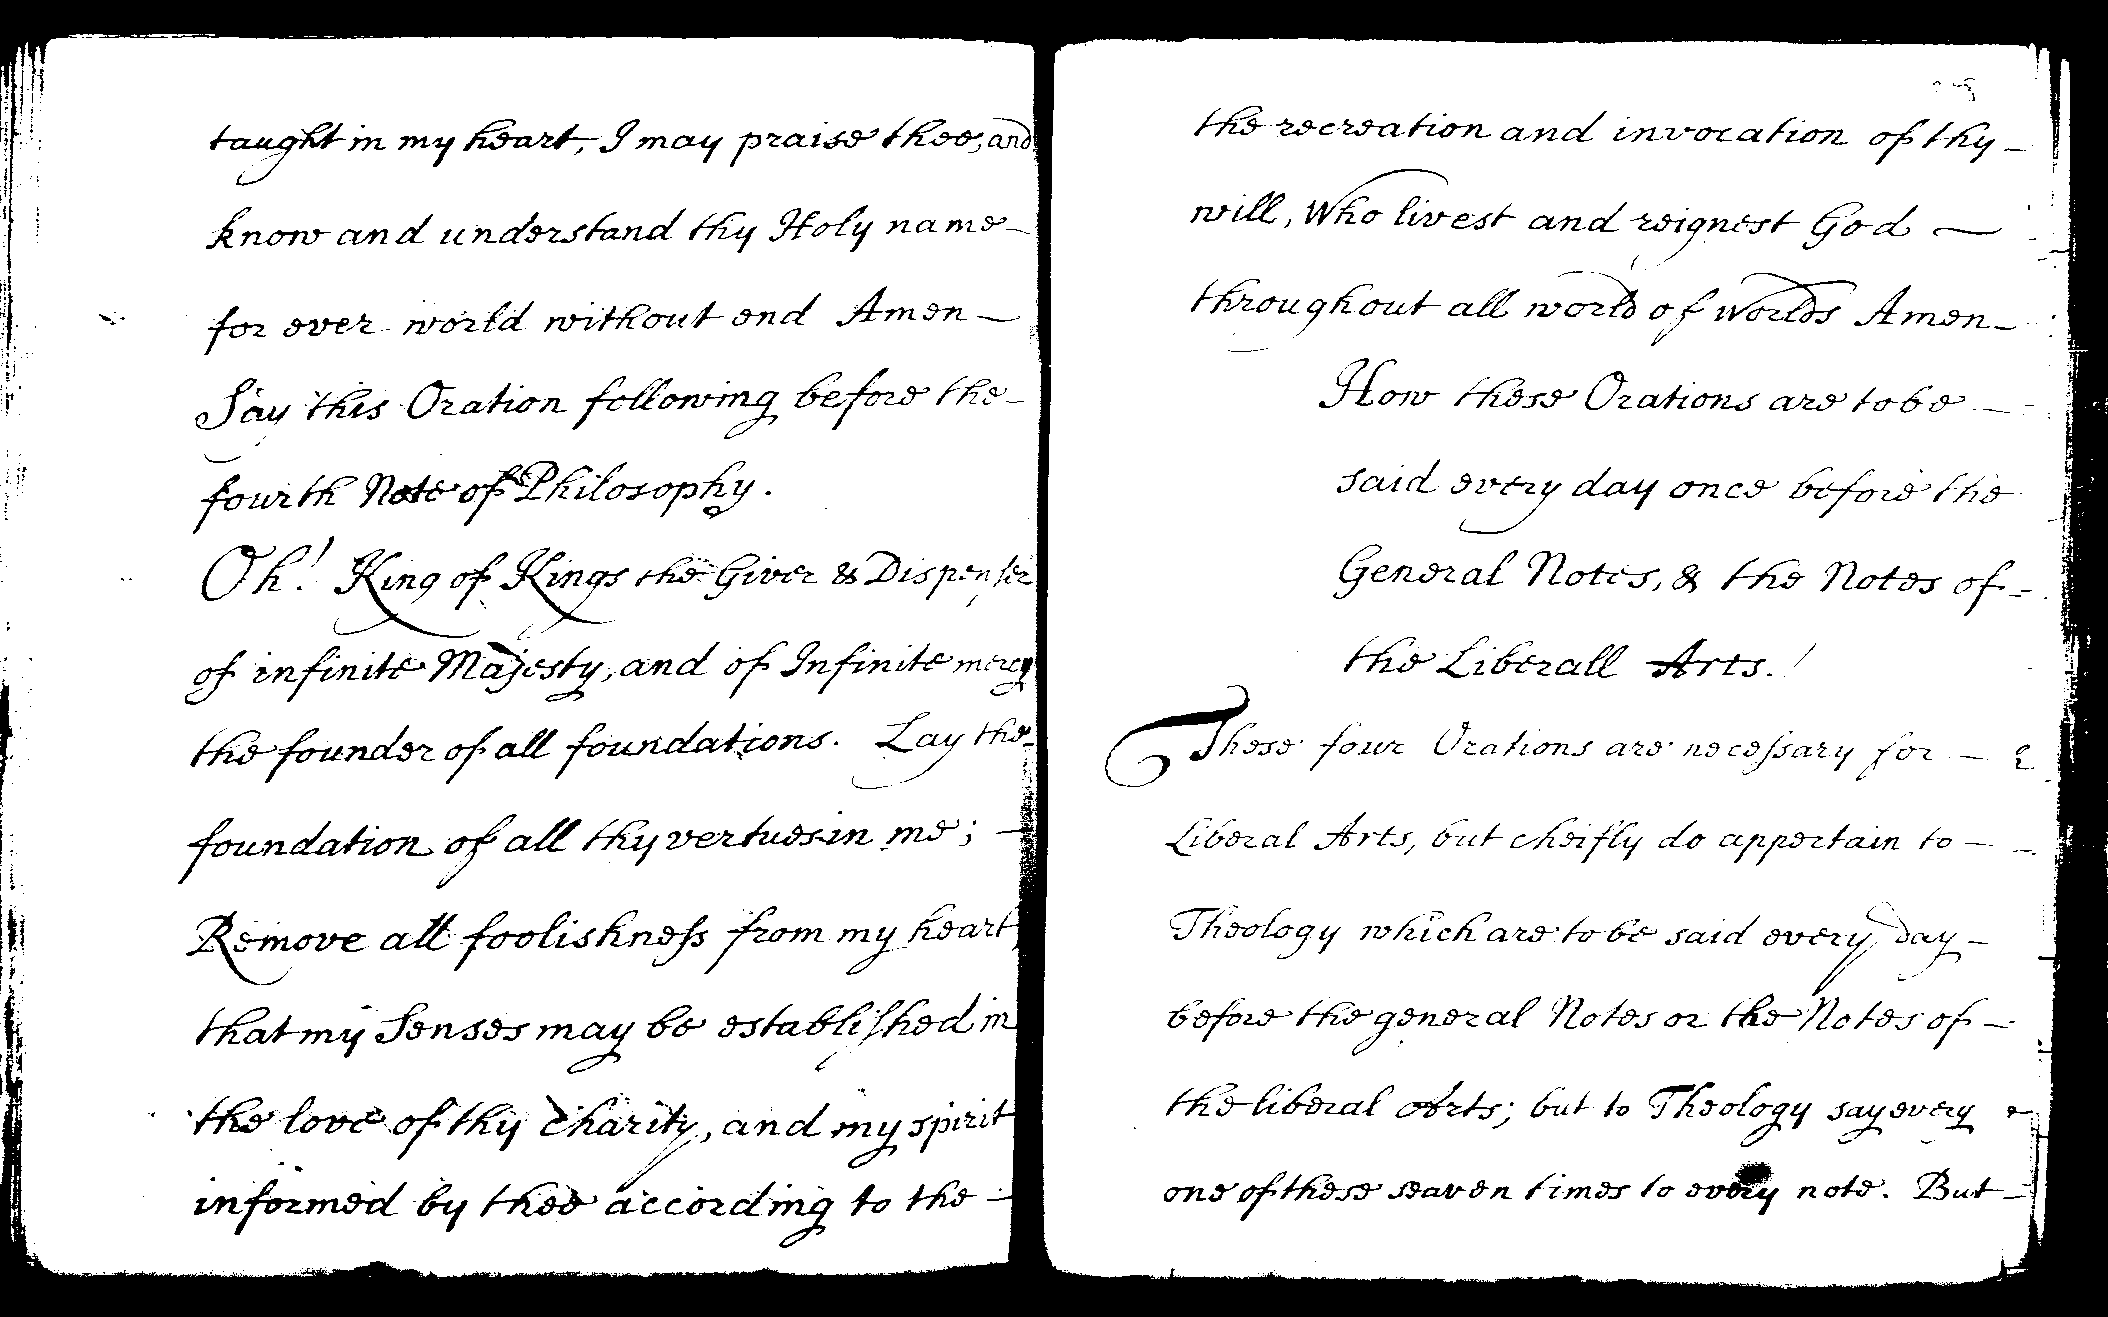 taught in my heart, I may praise thee, and
know and understand thy Holy name –
for ever world without end Amen –
Say this Oration following before the –
fourth Note of Philosophy.
Oh! King of Kings the Giver & Dispenser
of infinite Majesty, and of Infinite mercy
the founder of all foundations. Lay the –
foundation of all thy vertues in me; –
Remove all foolishneſs from my heart,
that my Senses may be establiſhed in
the love of thy Charity, and my spirit
informed by thee according to the –
the recreation and invocation of thy –
will, Who livest and reignest God –
throughout all world of Worlds Amen –
How these Orations are to be –
said every day once before the
General Notes, & the Notes of –
the Liberall Arts.!
These four Orations are neceſsary for –
Liberal Arts, but cheifly do appertain to –
Theology which are to be said every day –
before the general Notes or the Notes of –
the liberal Arts; but to Theology say every
one of these seaven times to every note. But –